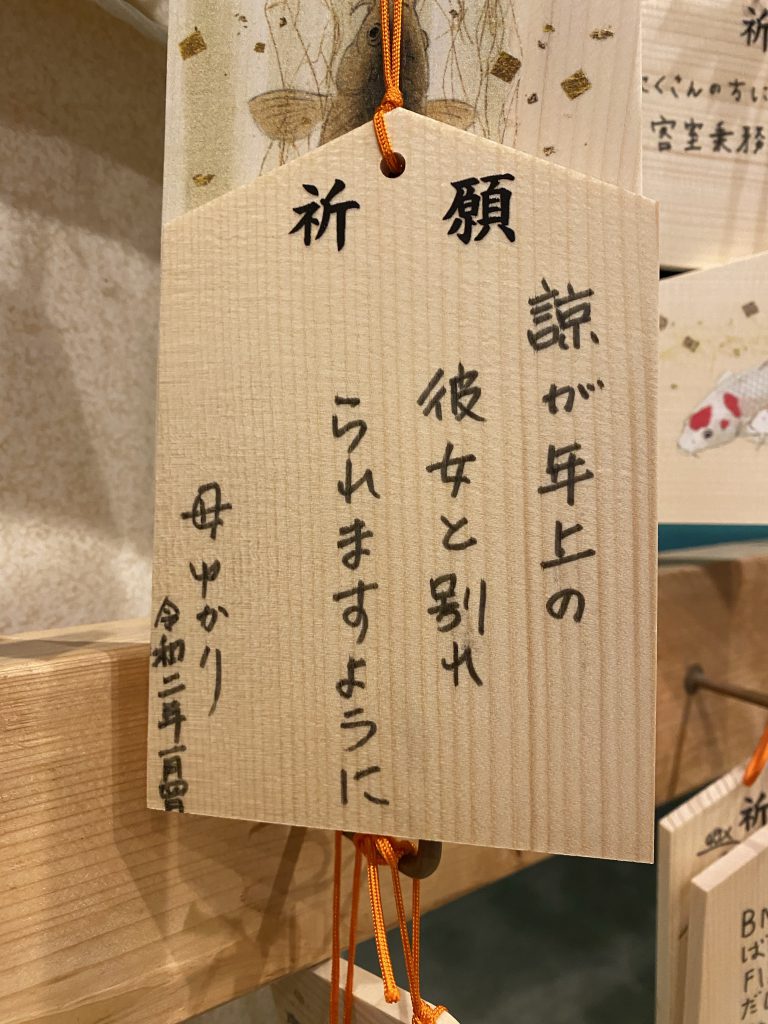 祈願
諒が年上の
彼女と別れ
られますように
母ゆかり
令和二年一月四日
祈
たくさんの方に
客室乗務
祈